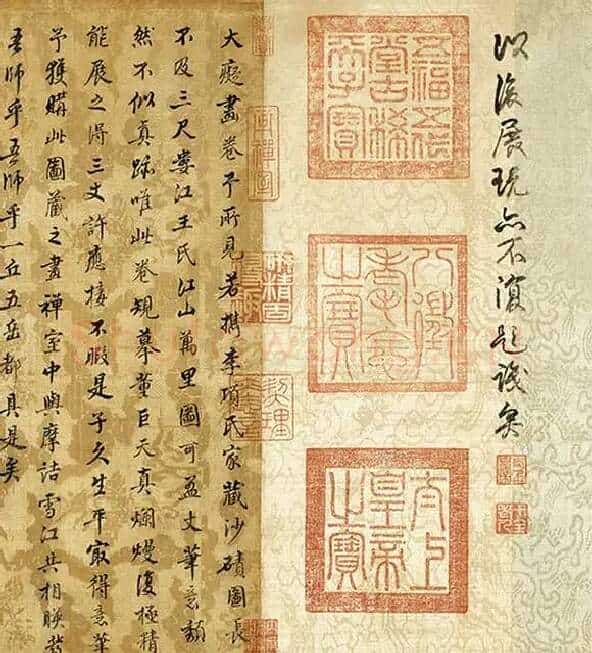 以後展玩亦不復題識矣
五福五代
堂古稀
天子寶
八徵
耄念
之寶
太上
皇帝
之寶
契理
大癡畫卷予所見若檇李項氏家藏沙磧圖長
不及三尺婁江王氏江山萬里圖可盈丈筆意頹
然不似真跡唯此卷規摹董巨天真爛熳復極精
能展之得三丈許應接不暇是子久生平冣得意筆
予獲購此圖藏之畫禪室中與摩詰雪江共相映發
吾師乎吾師乎一丘五岳都具是矣